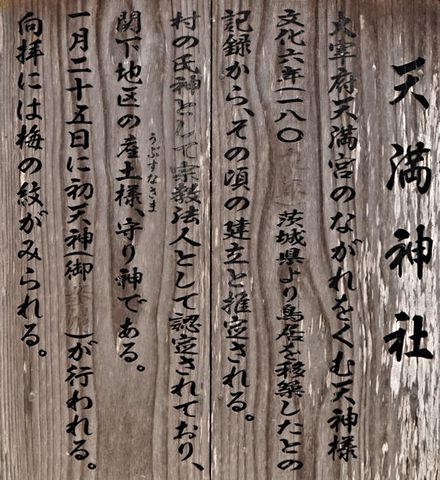 天満神社
太宰府天満宮のながれをくむ天神様
文化六年(一八〇 茨城県より鳥居を移築したとの
記録から、その頃の建立と推定される。
村の氏神として宗教法人として認定されており、
関下地区の産土様、守り神である。
うぶすなさま
一月二十五日に初天神(御 )が行われる。
向拝には梅の紋がみられる。